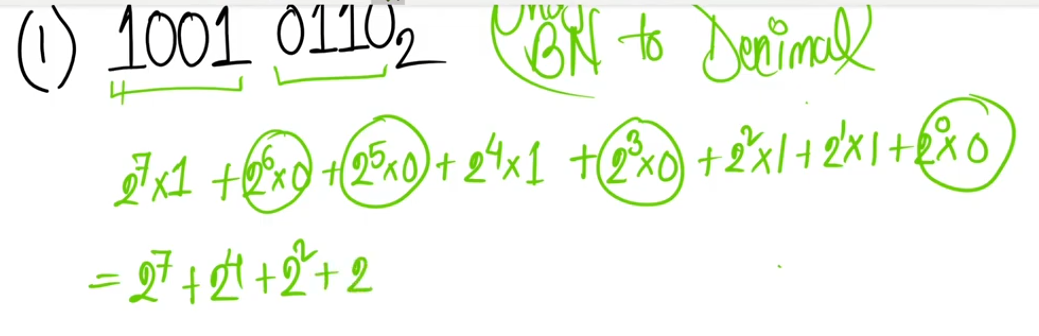 (1) 1001 0110₂ BN to Denimal
2⁷x1 + 2⁶x0 + 2⁵x0 + 2⁴x1 + 2³x0 + 2²x1 + 2¹x1 + 2⁰x0
= 2⁷ + 2⁴ + 2² + 2